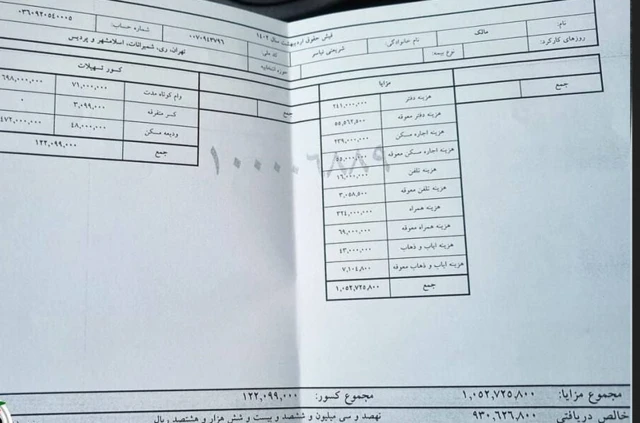 فیش حقوق اردیبهشت سال ۱۴۰۴
نام: مالک
نام خانوادگی: شریعتی نیاسر
کد ملی ۰۰۷۰۹۴۳۷۹۶
شماره حساب: ۰۳۶۰۹۲۰۵۴۰۰۰۵
روزهای کارکرد:
نوع بیمه:
حوزه انتخابیه تهران، ری، شمیرانات، اسلامشهر و پردیس
جمع
مزایا
هزینه دفتر ۲۴۱,۰۰۰,۰۰۰
هزینه دفتر معوقه ۵۵,۵۶۲,۵۰۰
هزینه اجاره مسکن ۲۳۹,۰۰۰,۰۰۰
هزینه اجاره مسکن معوقه ۵۵,۰۰۰,۰۰۰
هزینه تلفن ۱۶,۰۰۰,۰۰۰
هزینه تلفن معوقه ۳,۰۵۸,۵۰۰
هزینه همراه ۳۲۴,۰۰۰,۰۰۰
هزینه همراه معوقه ۶۹,۰۰۰,۰۰۰
هزینه ایاب و ذهاب ۴۳,۰۰۰,۰۰۰
هزینه ایاب و ذهاب معوقه ۷,۱۰۴,۸۰۰
جمع ۱,۰۵۲,۷۲۵,۸۰۰
جمع
کسور تسهیلات
وام کوتاه مدت ۷۱,۰۰۰,۰۰۰ ۶۹۸,۰۰۰,۰۰۰
کسر متفرقه ۳,۰۹۹,۰۰۰ ۰
ودیعه مسکن ۴۸,۰۰۰,۰۰۰ ۴۷۲,۰۰۰,۰۰۰
جمع ۱۲۲,۰۹۹,۰۰۰
۱۰۰۰۰۶۸۸۹
مجموع مزایا: ۱,۰۵۲,۷۲۵,۸۰۰ مجموع کسور: ۱۲۲,۰۹۹,۰۰۰
خالص دریافتی ۹۳۰,۶۲۶,۸۰۰ نهصد و سی میلیون و ششصد و بیست و شش هزار و هشتصد ریال